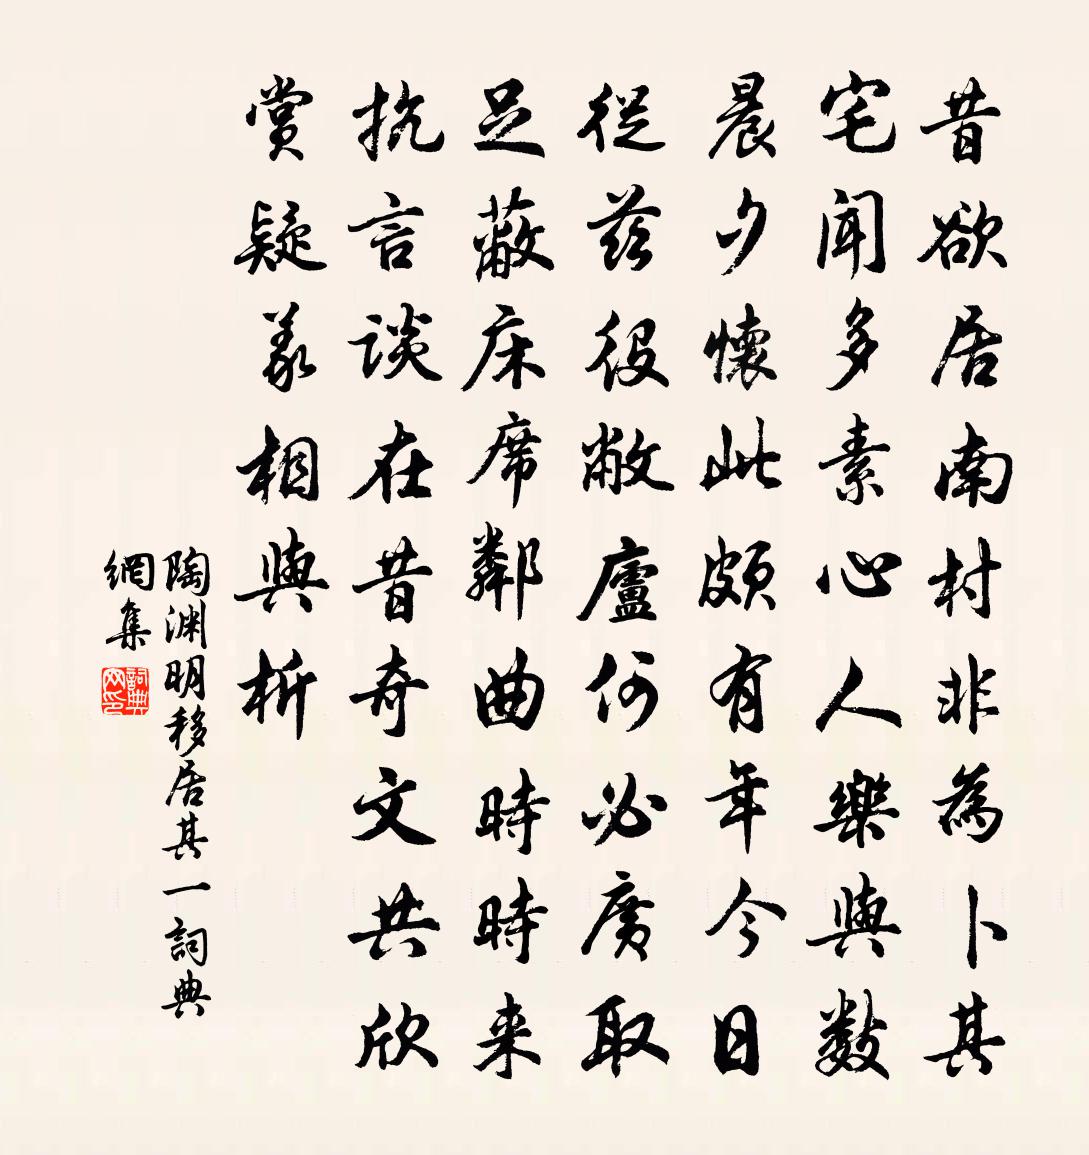 昔欲居南村非為卜其
宅聞多素心人樂與數
晨夕懷此頗有年今日
從茲役敝廬何必廣取
足蔽床席鄰曲時時来
抗言談在昔奇文共欣
賞疑義相與析
陶渊明移居其一詞典
網集
詞典
网印